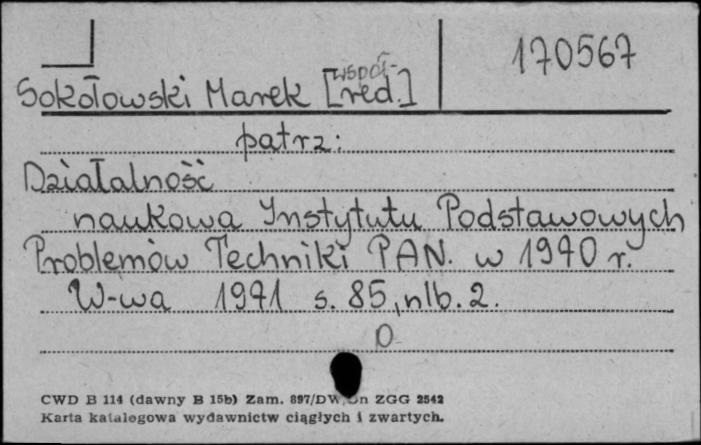 170567
Sokołowski Marek [współred.]
patrz:
Działalność
naukowa Instytutu Podstawowych
Problemów Techniki PAN. w 1970 r.
W-wa 1971 s. 85, nlb. 2.
CWD B 114 (dawny B 15b) Zam. 897/DW, ZGG 2542
Karta katalogowa wydawnictw ciągłych i zwartych.